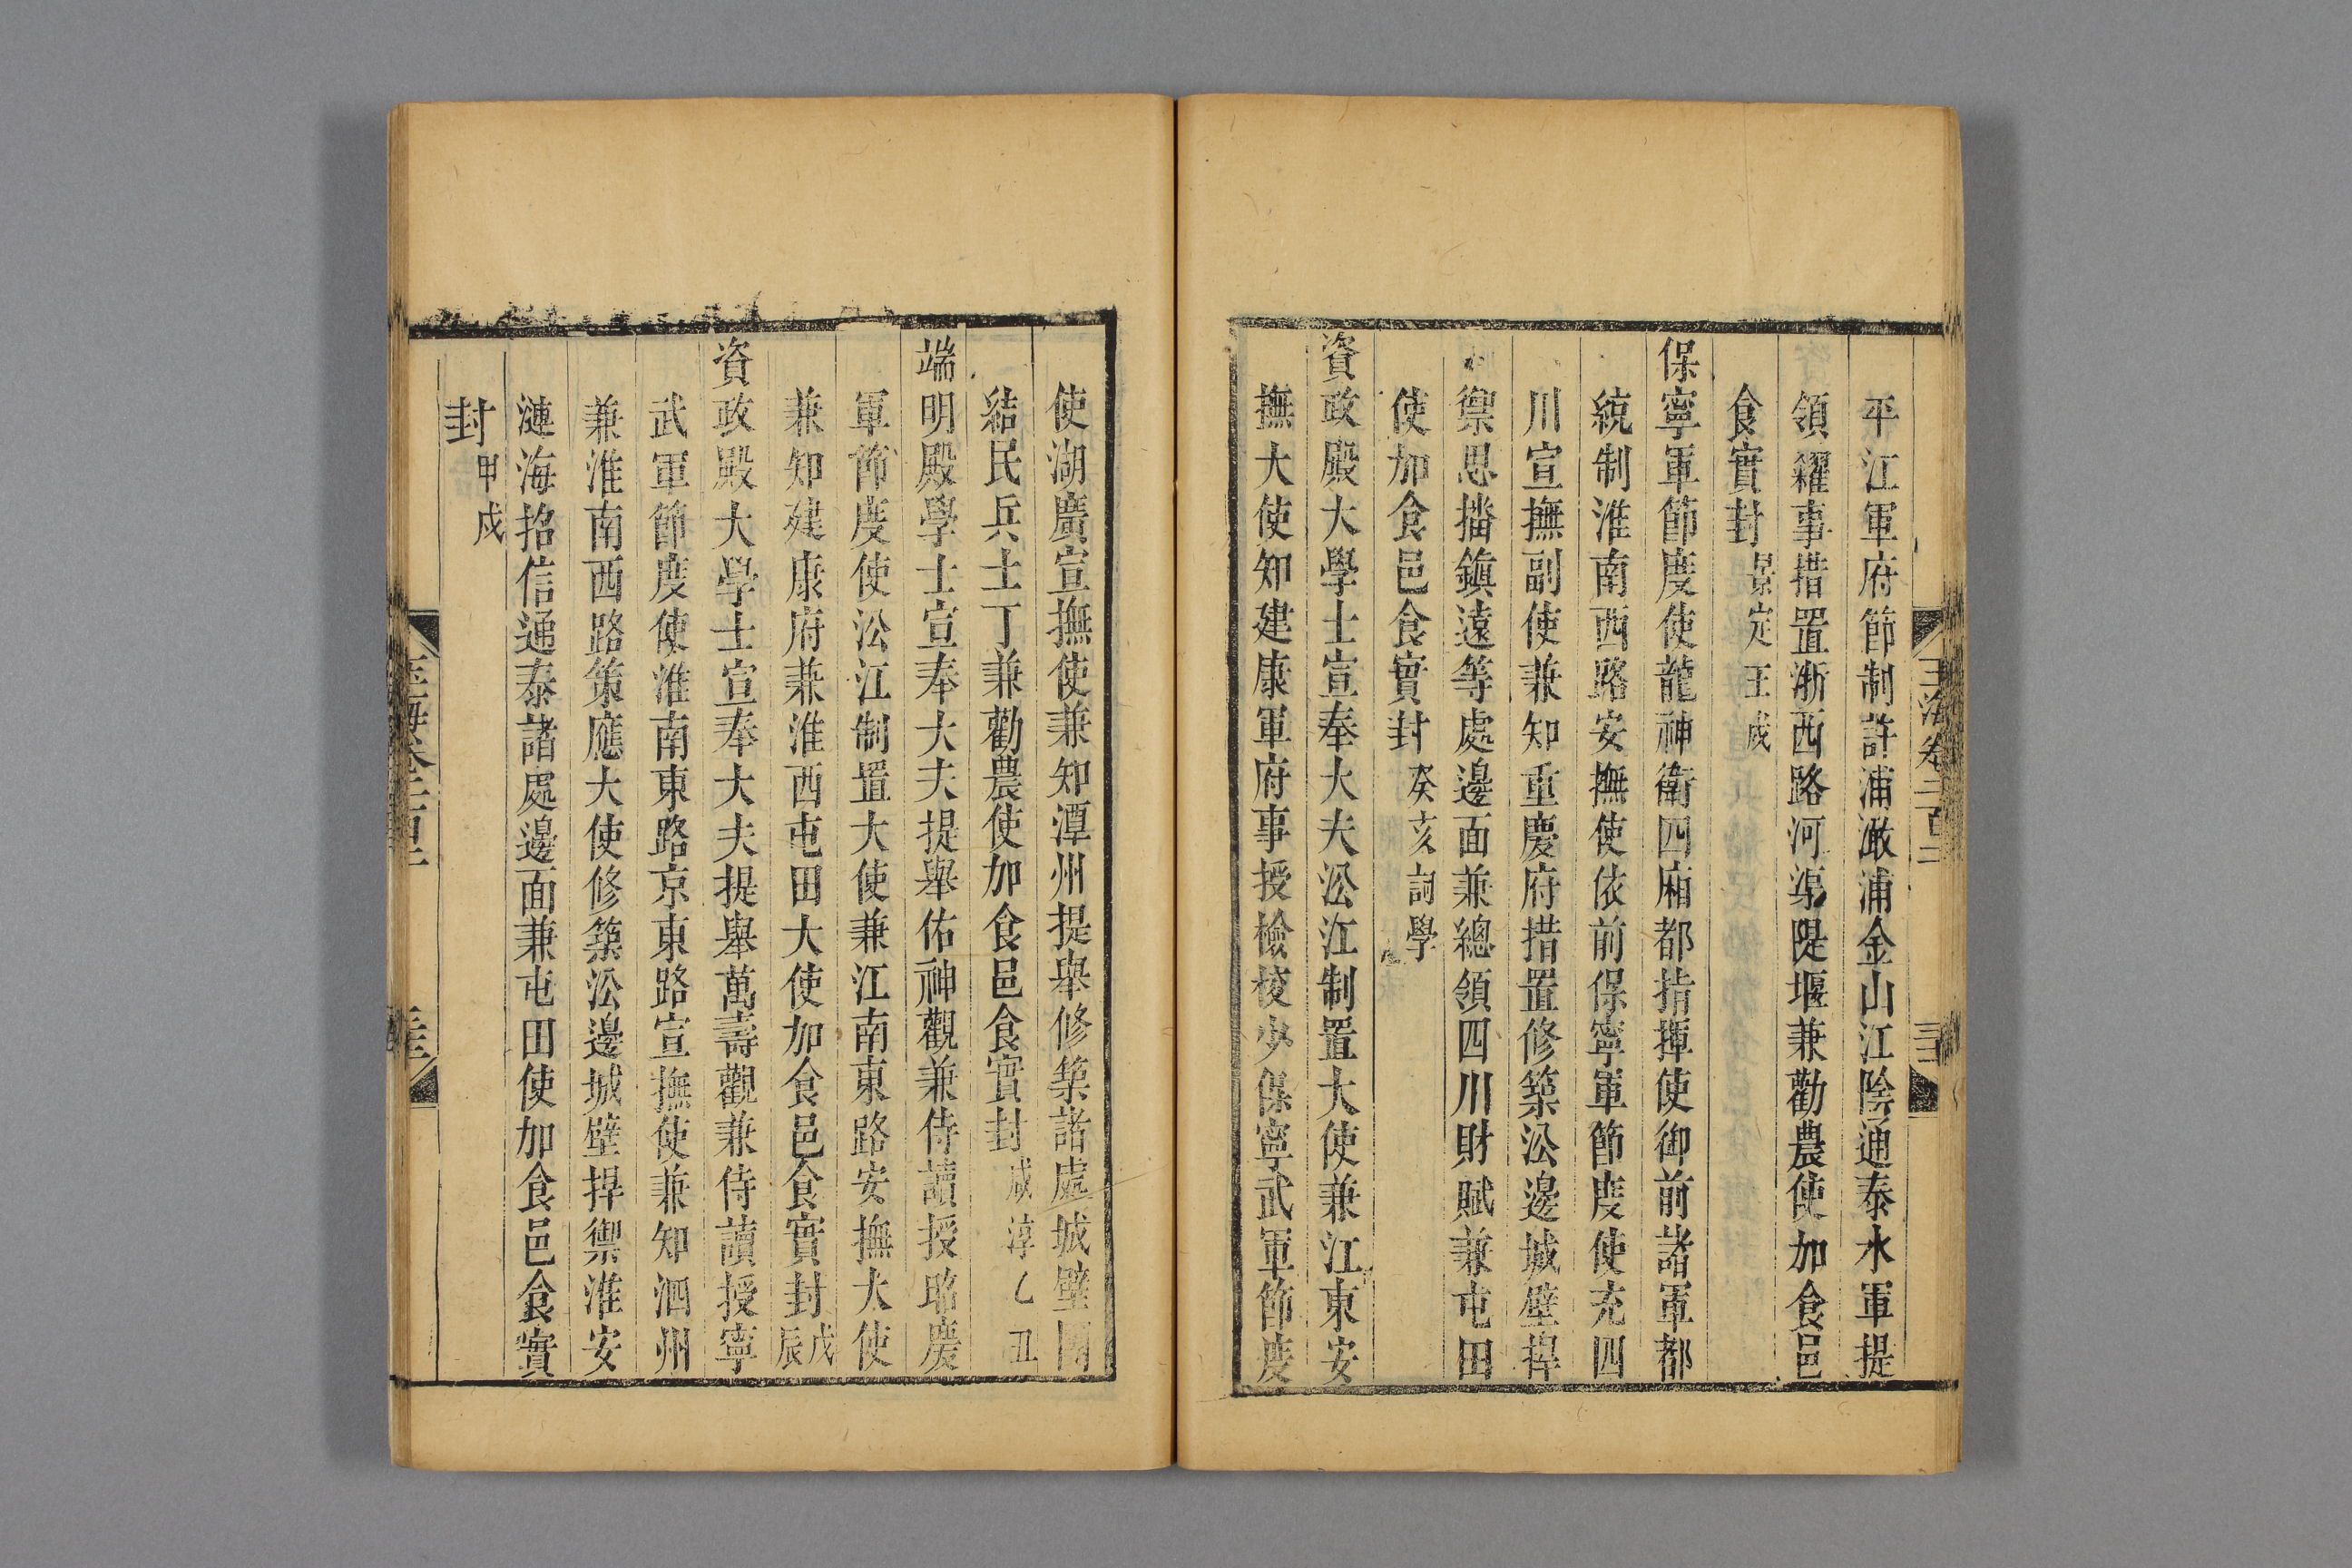 平江軍府節制許浦澉浦金山江陰通泰水軍提
領糴事措置浙西路河渠隄堰兼勸農使加食邑
食實封景定壬戌
保寧軍節度使龍神衛四廂都指揮使御前諸軍都
統制淮南西路安撫使依前保寧軍節度使充四
川宣撫副使兼知重慶府措置修築沿邊城壁捍
禦思播鎮遠等處邊面兼總領四川財賦兼屯田
使加食邑食實封癸亥詞學
資政殿大學士宣奉大夫沿江制置大使兼江東安
撫大使知建康軍府事授檢校少保寧武軍節度
使湖廣宣撫使兼知潭州提舉修築諸處城壁團
結民兵土丁兼勸農使加食邑食實封咸淳乙丑
端明殿學士宣奉大夫提舉佑神觀兼侍讀授昭慶
軍節度使沿江制置大使兼江南東路安撫大使
兼知建康府兼淮西屯田大使加食邑食實封戊辰
資政殿大學士宣奉大夫提舉萬壽觀兼侍讀授寧
武軍節度使淮南東路京東路宣撫使兼知泗州
兼淮南西路策應大使修築沿邊城壁捍禦淮安
漣海招信通泰諸處邊面兼屯田使加食邑食實
封甲戌